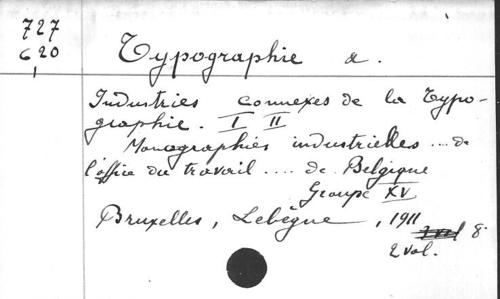 727
620
Typographie a.
Industries connexes de la Typo-
graphie. I II
Monographies industrielles ... de
l'office du travail .... de Belgique
Groupe XV
Bruxelles, Lebègue, 1911
8.
2 vol.